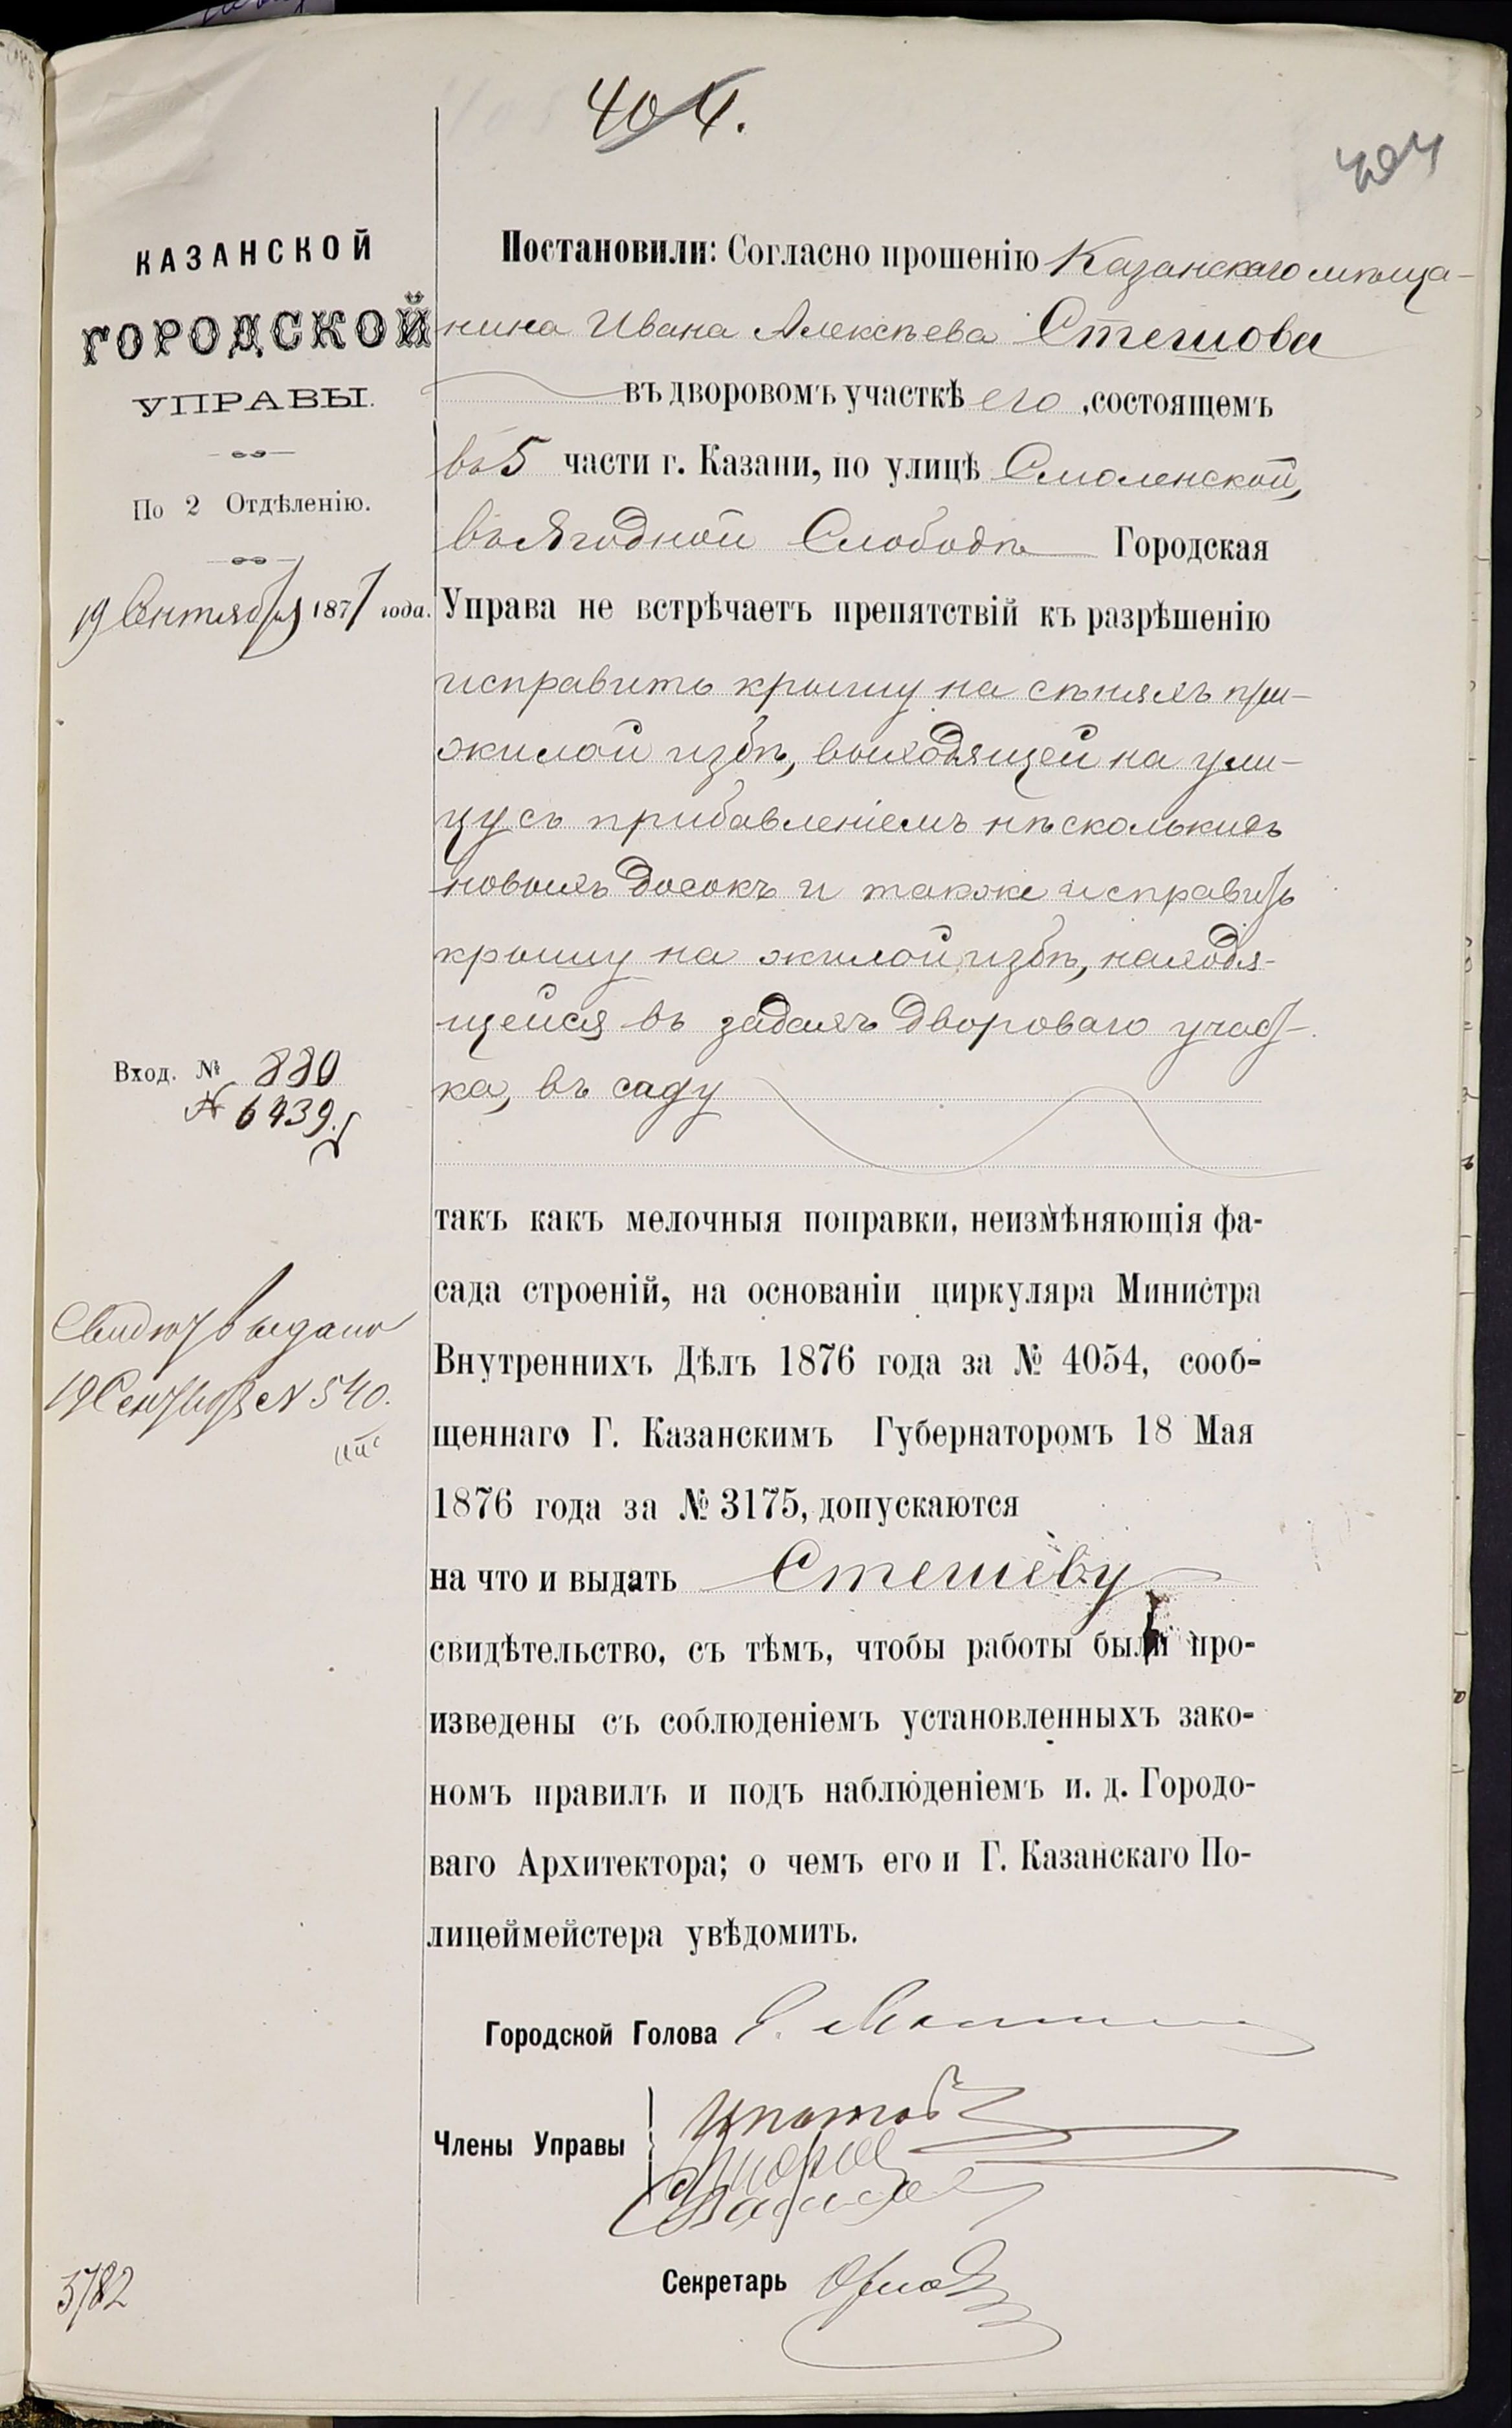 404.
404
КАЗАНСКОЙ
ГОРОДСКОЙ
УПРАВЫ.
По 2 Отдѣленію.
19 Сентября 1877 года.
Вход. № 880
№ 6439.
выдано
19 Сентября № 540.
3782
Постановили: Согласно прошенію Казанскаго мѣща-
нина Ивана Алексѣева Стешова
въ дворовомъ участкѣ его, состоящемъ
въ 5 части г. Казани, по улицѣ Смоленской,
въ Ягодной Слободѣ Городская
Управа не встрѣчаетъ препятствій къ разрѣшенію
исправить крышу на сѣняхъ при
жилой избѣ, выходящей на ули-
цу съ прибавленіемъ нѣсколькихъ
новыхъ досокъ и также исправить
крышу на жилой избѣ, находя-
щейся въ задахъ двороваго участ-
ка, въ саду
такъ какъ мелочныя поправки, неизмѣняющія фа-
сада строеній, на основаніи циркуляра Министра
Внутреннихъ Дѣлъ 1876 года за № 4054, сооб-
щеннаго Г. Казанскимъ Губернаторомъ 18 Мая
1876 года за № 3175, допускаются
на что и выдать Стешёву
свидѣтельство, съ тѣмъ, чтобы работы были про-
изведены съ соблюденіемъ установленныхъ зако-
номъ правилъ и подъ наблюденіемъ и. д. Городо-
ваго Архитектора; о чемъ его и Г. Казанскаго По-
лицеймейстера увѣдомить.
Городской Голова
Члены Управы Ипатов
Секретарь